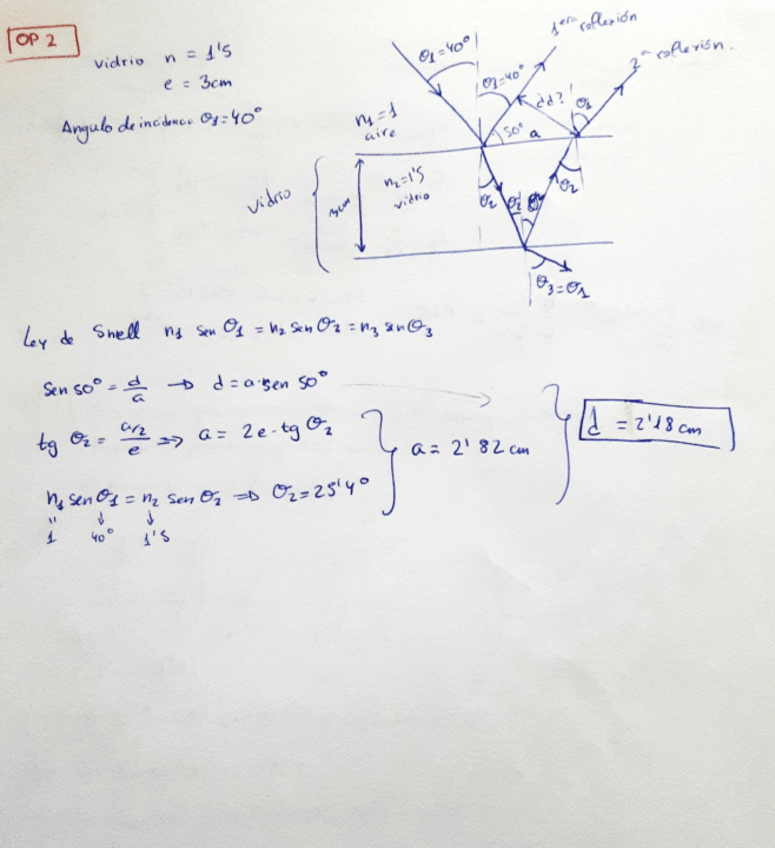 OP 2
vidrio n = 1'5
e = 3cm
Angulo de incidencia θ1=40°
θ1=40°
θ1=40°
1era reflexión
2a reflexión.
¿d?
θ1
50° a
n1=1
aire
vidrio
3cm
n2=1'5
vidrio
θ2
θ2
θ2
θ3=θ1
Ley de Snell n1 sen θ1 = n2 sen θ2 = n3 sen θ3
Sen 50° = d/a → d = a·sen 50°
tg θ2 = (a/2)/e ⇒ a = 2e·tg θ2
n1 sen θ1 = n2 sen θ2 ⇒ θ2=25'4°
" ↓ ↓
1 40° 1'5
a = 2'82 cm
d = 2'18 cm